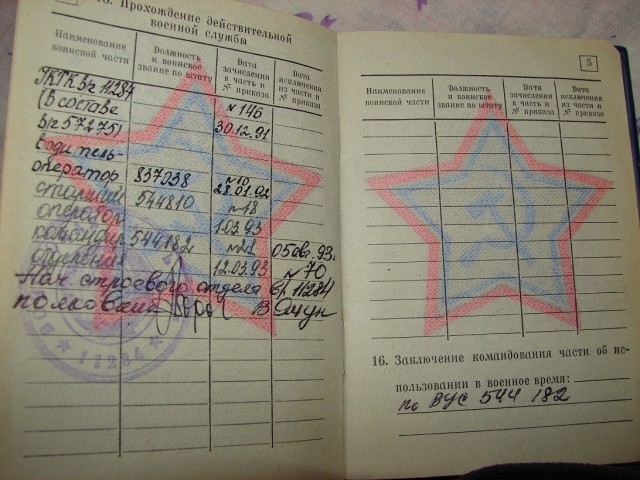 15. Прохождение действительной
военной службы
Наименование
воинской части
Должность
и воинское
звание по штату
Дата
зачисления
в часть и
№ приказа
Дата
исключения
из части и
№ приказа
в/ч 11284
(В составе
в/ч 57275)
№ 146
30.12.91
Водитель-
оператор 837038 №10
28.01.92
старший 544810 №48
оператор 1.03.93
командир 544182 №21 05авг.93г.
отделения 12.03.93 №70
Нач строевого отдела в/ч 11284
11284
5
Наименование
воинской части
Должность
и воинское
звание по штату
Дата
зачисления
в часть и
№ приказа
Дата
исключения
из части и
№ приказа
16. Заключение командования части об ис-
пользовании в военное время:
по ВУС 544 182